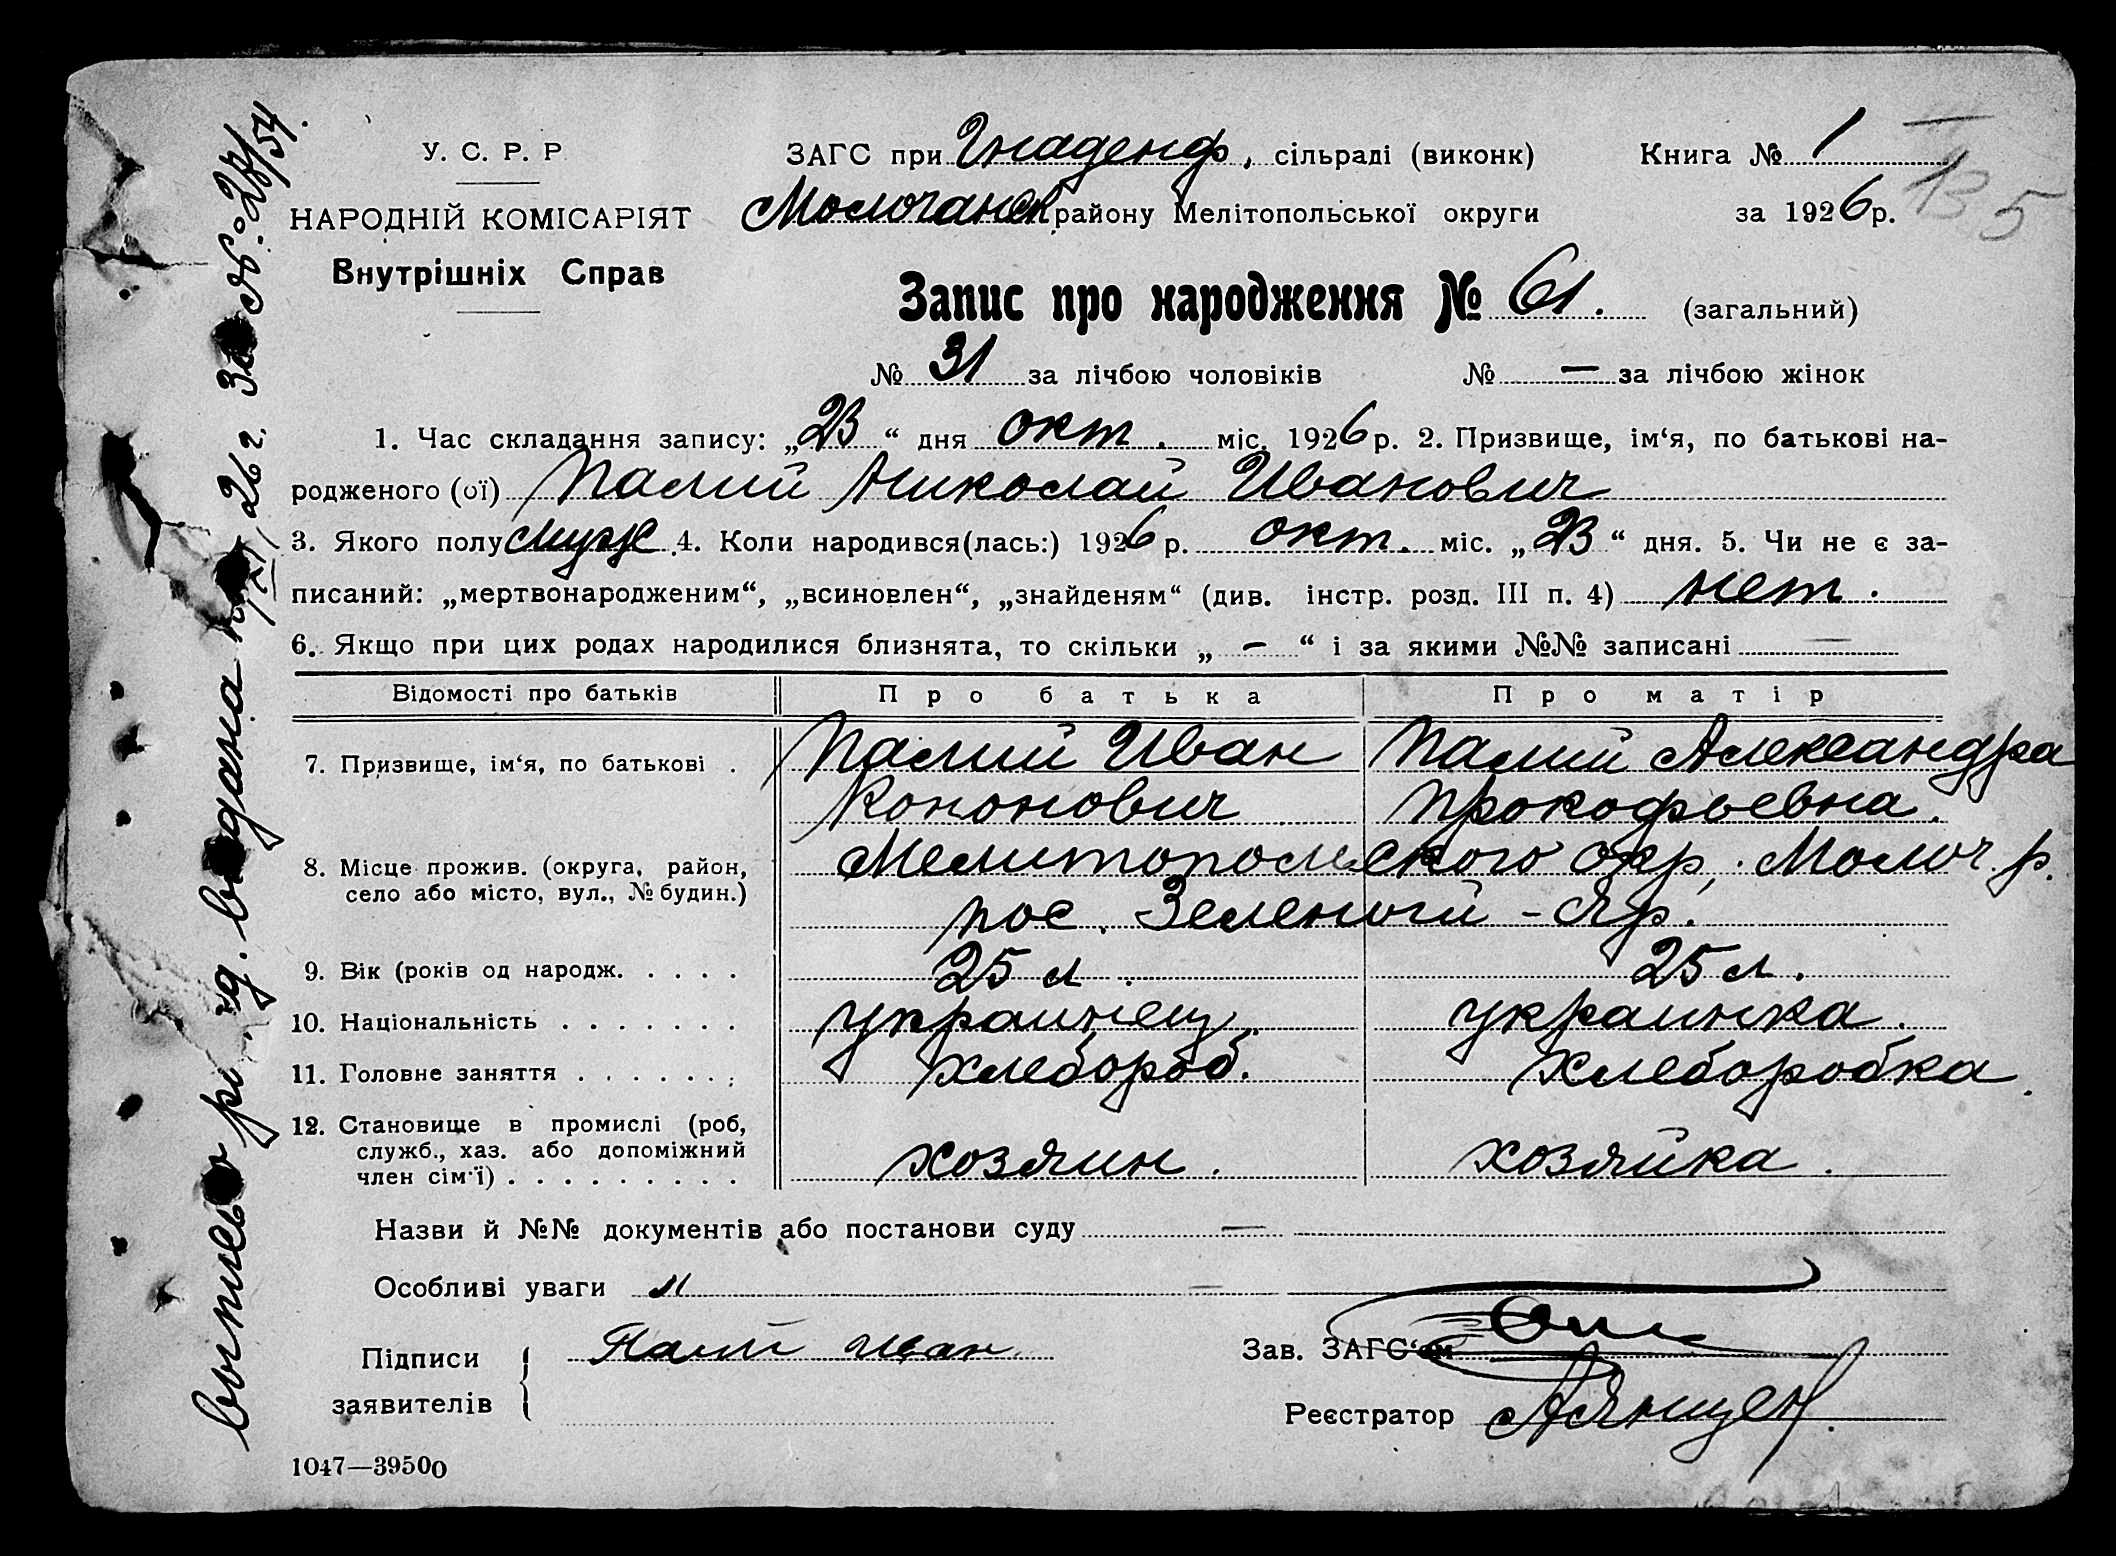 У. С. Р. Р
НАРОДНІЙ КОМІСАРІЯТ
Внутрішніх Справ
ЗАГС при Гнаденф, сільраді (виконк)
Молочанск району Мелітопольської округи
Книга № 1
за 1926 р.
5
Запис про народження № 61. (загальний)
№ 31 за лічбою чоловіків № — за лічбою жінок
1. Час складання запису: „23“ дня окт. міс. 1926 р. 2. Призвище, ім‘я, по батькові на-
родженого (ої) Палий Николай Иванович
3. Якого полу муж 4. Коли народився(лась:) 1926 р. окт. міс. „23“ дня. 5. Чи не є за-
писаний: „мертвонародженим“, „всиновлен“, „знайденям“ (див. інстр. розд. III п. 4) нет.
6. Якщо при цих родах народилися близнята, то скільки „ – “ і за якими №№ записані —
Відомості про батьків Про батька Про матір
7. Призвище, ім‘я, по батькові . Палий Иван Палий Александра
Кононович Прокофьевна.
8. Місце прожив. (округа, район, Мелитопольского окр, Молоч. р.
село або місто, вул., № будин.) пос. Зеленый - Яр.
9. Вік (років од народж. . . . . 25 л. 25 л.
10. Національність . . . . . . . украинец. украинка.
11. Головне заняття . . . . . . ; хлебороб. хлеборобка.
12. Становище в промислі (роб,
служб., хаз. або допоміжний хозяин. хозяйка.
член сім‘ї) . . . . . . . . .
Назви й №№ документів або постанови суду — 
Особливі уваги " —
Підписи
заявителів
Палій Иван
Зав. ЗАГС‘ом
Реєстратор
1047—39500
выпись выдана 26 г.